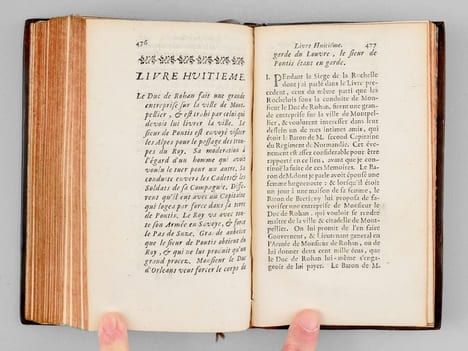 476
LIVRE HUITIEME.
Le Duc de Rohan fait une grande
entreprise sur la ville de Mont-
pellier, & est trahi par celui qui
devoit lui livrer la ville. Le
sieur de Pontis est envoyé visiter
les Alpes pour le passage des trou-
pes du Roy. Sa moderation à
l'égard d'un homme qui avoit
voulu le tuer pour un autre. Sa
conduite envers les Cadets & les
Soldats de sa Compagnie. Diffe-
rens qu'il eut avec un Capitaine
qui logea par force dans sa terre
de Pontis. Le Roy va avec tou-
te son Armée en Savoye, & force
le Pas de Suze. Grace aubeine
que le sieur de Pontis obtient du
Roy, & qui ne lui procure qu'un
grand procez. Monsieur le Duc
d'Orleans veut forcer le corps de
Livre Huitiéme. 477
garde du Louvre, le sieur de
Pontis étant en garde.
I. PEndant le Siege de la Rochelle
dont j'ai parlé dans le Livre pre-
cedent, ceux du même parti que les
Rochelois sous la conduite de Mon-
sieur le Duc de Rohan, firent une gran-
de entreprise sur la ville de Montpel-
lier, & voulurent interesser dans leur
dessein un de mes intimes amis, qui
étoit le Baron de M. second Capitaine
du Regiment de Normandie. Cet éve-
nement est assez considerable pour être
rapporté en ce lieu, avant que je conti-
nuë la suite de ces Memoires. Le Ba-
ron de M. dont je parle avoit épousé une
femme huguenotte; & lorsqu'il étoit
un jour à une maison de sa femme, le
Baron de Bretigny lui proposa de fa-
voriser une entreprise de Monsieur le
Duc de Rohan, qui vouloit se rendre
maître de la ville & citadelle de Mont-
pellier. On lui promit de l'en faire
Gouverneur, & Lieutenant general en
l'Armée de Monsieur de Rohan, ou de
lui donner deux cent mille écus, que
le Duc de Rohan lui-même s'en-
gageoit de lui payer. Le Baron de M.